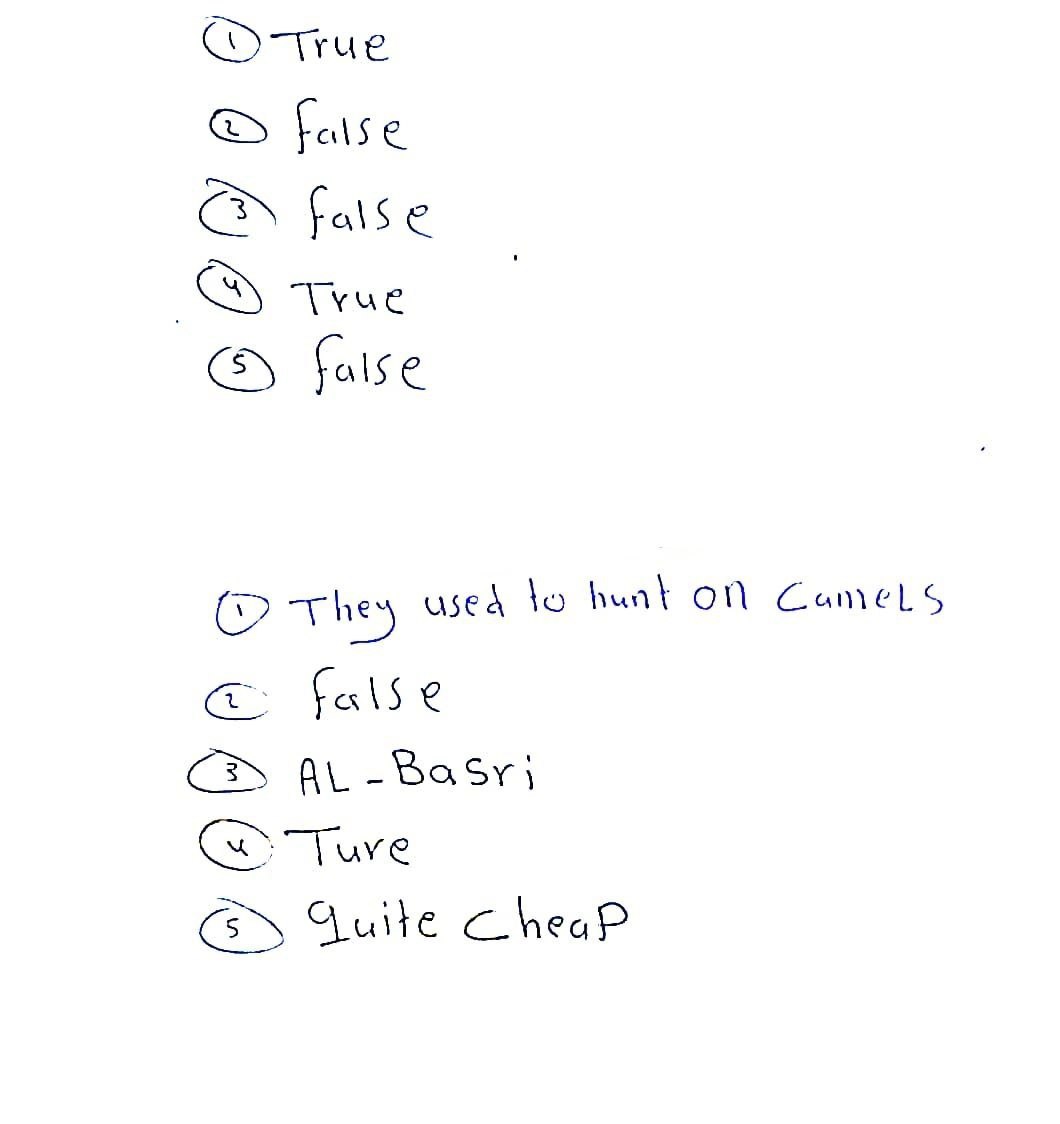 ① True
② false
③ false
④ True
⑤ false
① They used to hunt on camels
② false
③ AL-Basri
④ Ture
⑤ quite cheap